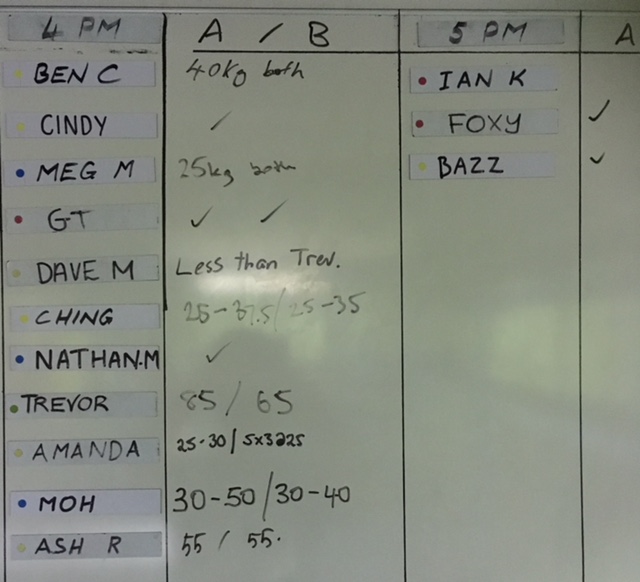 4 PM A / B 5 PM A
BEN C 40Kg both IAN K
CINDY ✓ FOXY ✓
MEG M 25kg both BAZZ ✓
GT ✓ ✓
DAVE M Less than Trev.
CHING 25-37.5/25-35
NATHAN.M ✓
TREVOR 85 / 65
AMANDA 25-30/5x3@25
MOH 30-50/30-40
ASH R 55 / 55.